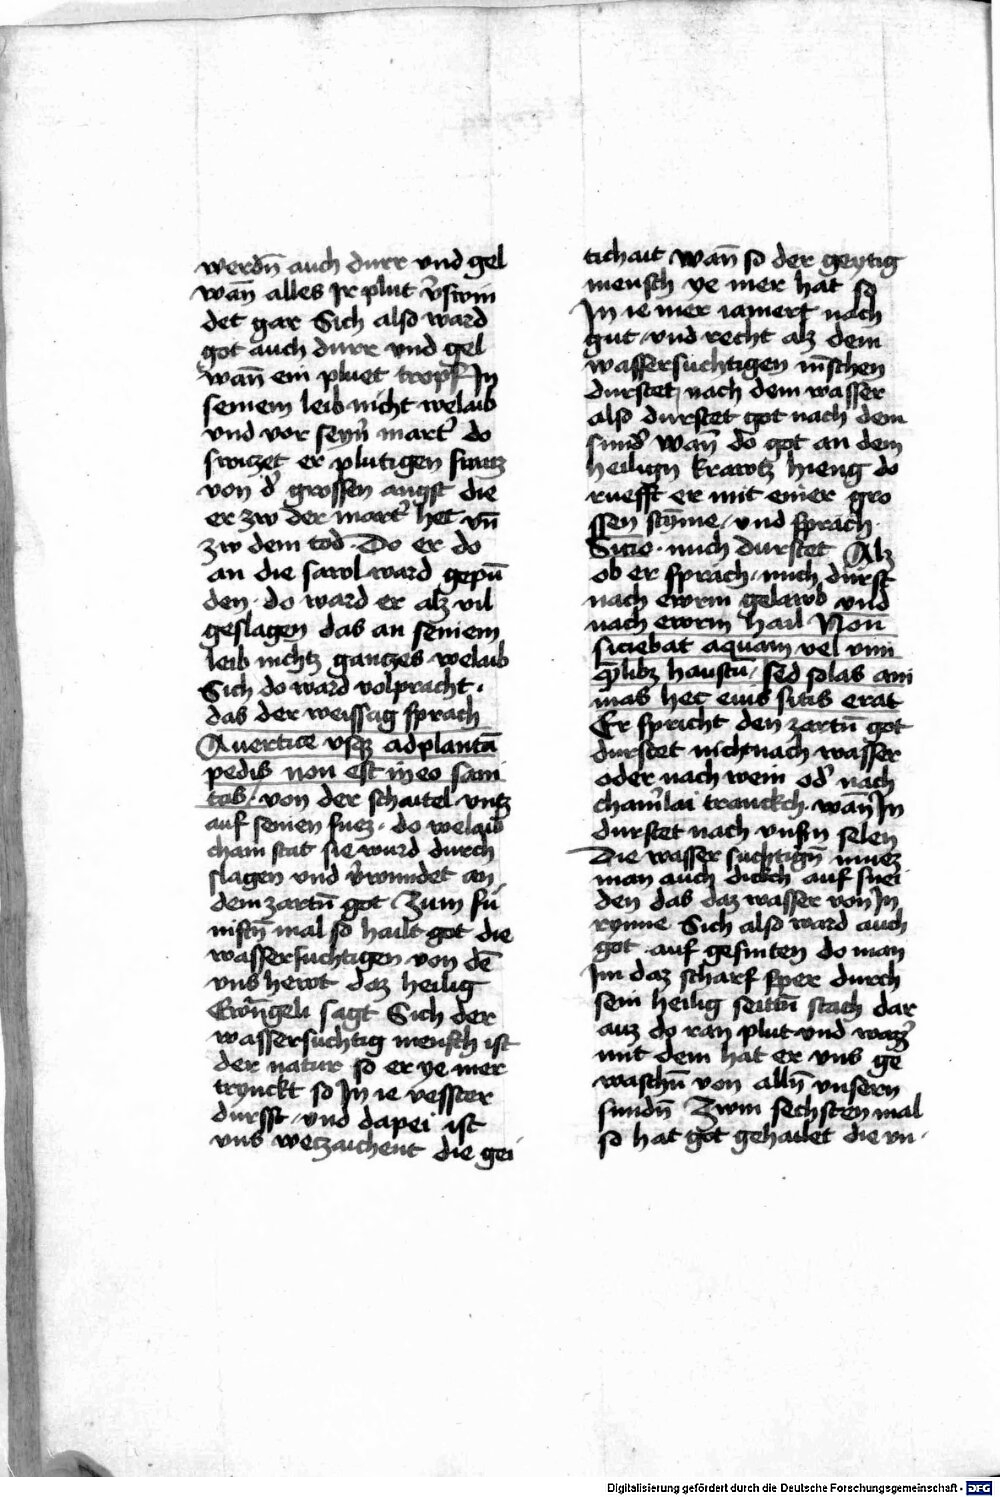 werdn̄ auch durr vnd gel
wan̄ alles Ir plut v̓swin
det gar Sich also ward
got auch durr vnd gel
wan̄ ein pluet tropf In
seinem leib nicht welaib
vnd vor seyn̓ mart̓ do
swiczet er plutigen swaiz
von d̓ grossen angst die
er zw der mart̓ het vn̄
zw dem tod · Do er do
an die sawl ward gepū
den · do ward er alz vil
geslagen das an seinem
leib nichtz gantzes welaib
Sich do ward volpracht ·
das der weissag sprach
A uertice vsqz ad plantā
pedis non est in eo sani
tas / von der schaitel vntz
auf seinen fuez · do welaib
chain stat sie wurd durch
slagen vnd v̓wundet an
dem zartn̄ got Zum fū
nftn̄ mal so hailt got die
wassersuchtigen von dē
vns hewt daz heilig
Ewāngeli sagt Sich der
wassersuchtig mensch ist
der natur so er ye mer
trynckt so In ie vesster
dursst · vnd dapei ist
vns weczaichent die gei
tichait wan̄ so der geytig
mensch ye mer hat so
In ie mer iamert nach
gut / vnd recht alz dem
wassersuchtigen mn̄schen
durstet / nach dem wasser
also durstet got nach dem
sund̓ wan̄ do got an dem
heilign krawtz hieng do
ruefft er mit einer gro
ssen stȳme / vnd sprach ·
Sitio · mich durstet Alz
ob er sprach / mich durst
nach ewrm gelawb vnd
nach ewrm hail Non̄
siciebat aquam vel vini
q̄libz haustū / sed solas ani
mas hec eius sitis erat
Er spricht den zartn̄ got
durstet nicht nach wasser
oder nach wein od̓ nach
cham̓lai tranckch · wan̄ In
durstet nach vnsn̄ selen
Die wasser suchtign̄ muez
man auch dickch auf snei
den das daz wasser von In
rynne Sich also ward auch
got auf gesniten do man
Im daz scharf sper durch
sein heilig seittn̄ stach dar
auz do ran plut vnd wazz̓
mit dem hat er vns ge
waschn̄ von alln̄ vnsern
sundn̄ Zwm sechsten mal
so hat got gehailet die vn ·
Digitalisierung gefördert durch die Deutsche Forschungsgemeinschaft - DFG